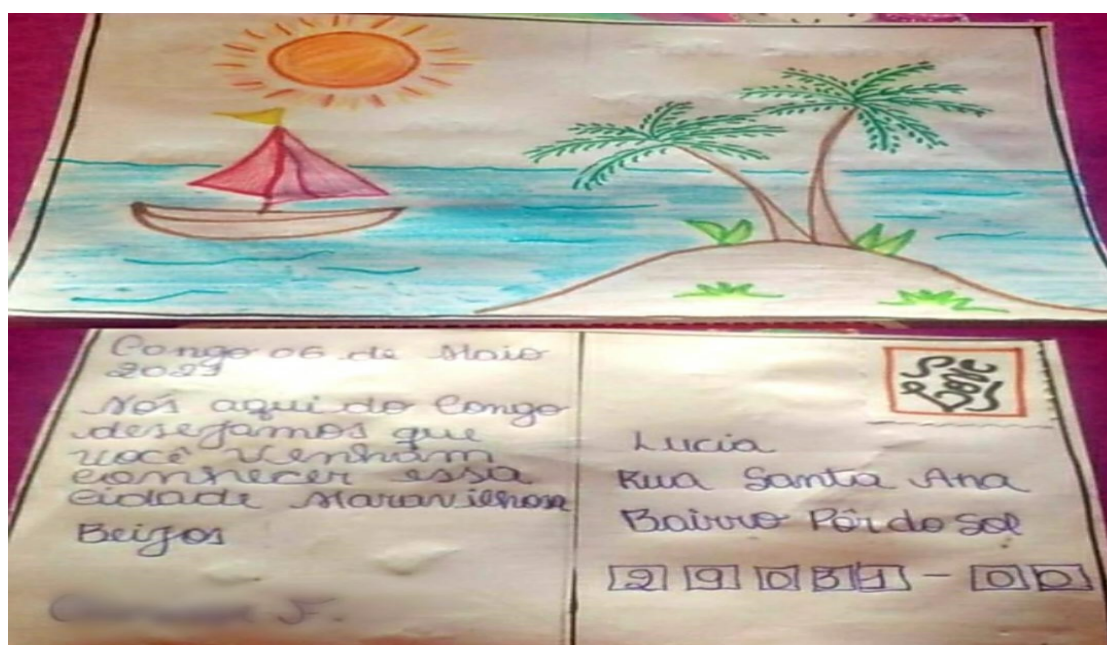 Congo 06 de Maio
2021
Nós aqui do Congo
desejamos que
você venham
conhecer essa
cidade Maravilhosa
Beijos
F.
Lucia
Rua Santa Ana
Bairro Pôr do Sol
29031-00